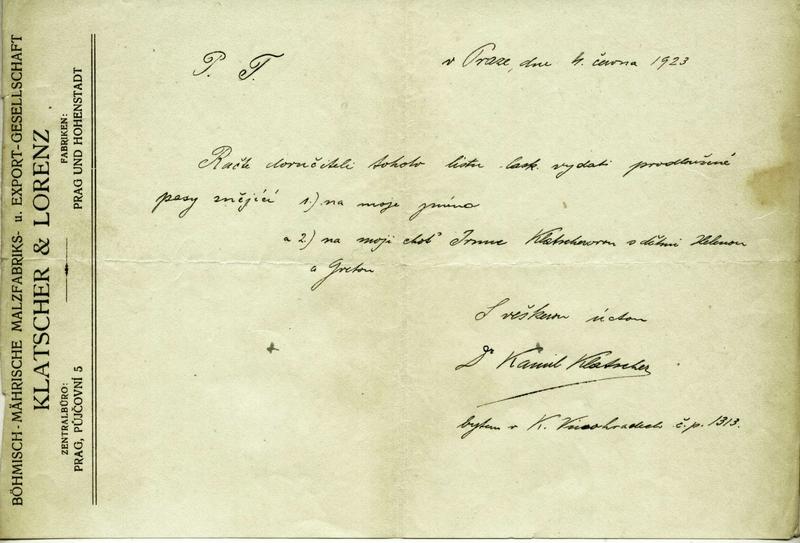 BÖHMISCH-MÄHRISCHE MALZFABRIKS- u. EXPORT-GESELLSCHAFT
KLATSCHER & LORENZ
ZENTRALBÜRO:
PRAG, PŮJČOVNÍ 5
FABRIKEN:
PRAG UND HOHENSTADT
P. T.
v Praze, dne 4. června 1923
Račte doručiteli tohoto listu lask. vydati prodloužené
pasy znějící 1.) na moje jméno
a 2) na moji choť Irmu Klatscherovou s dětmi Helenou
a Gretou
S veškerou úctou
Dr Kamil Klatscher
bytem v K. Vinohradech č.p. 1313.